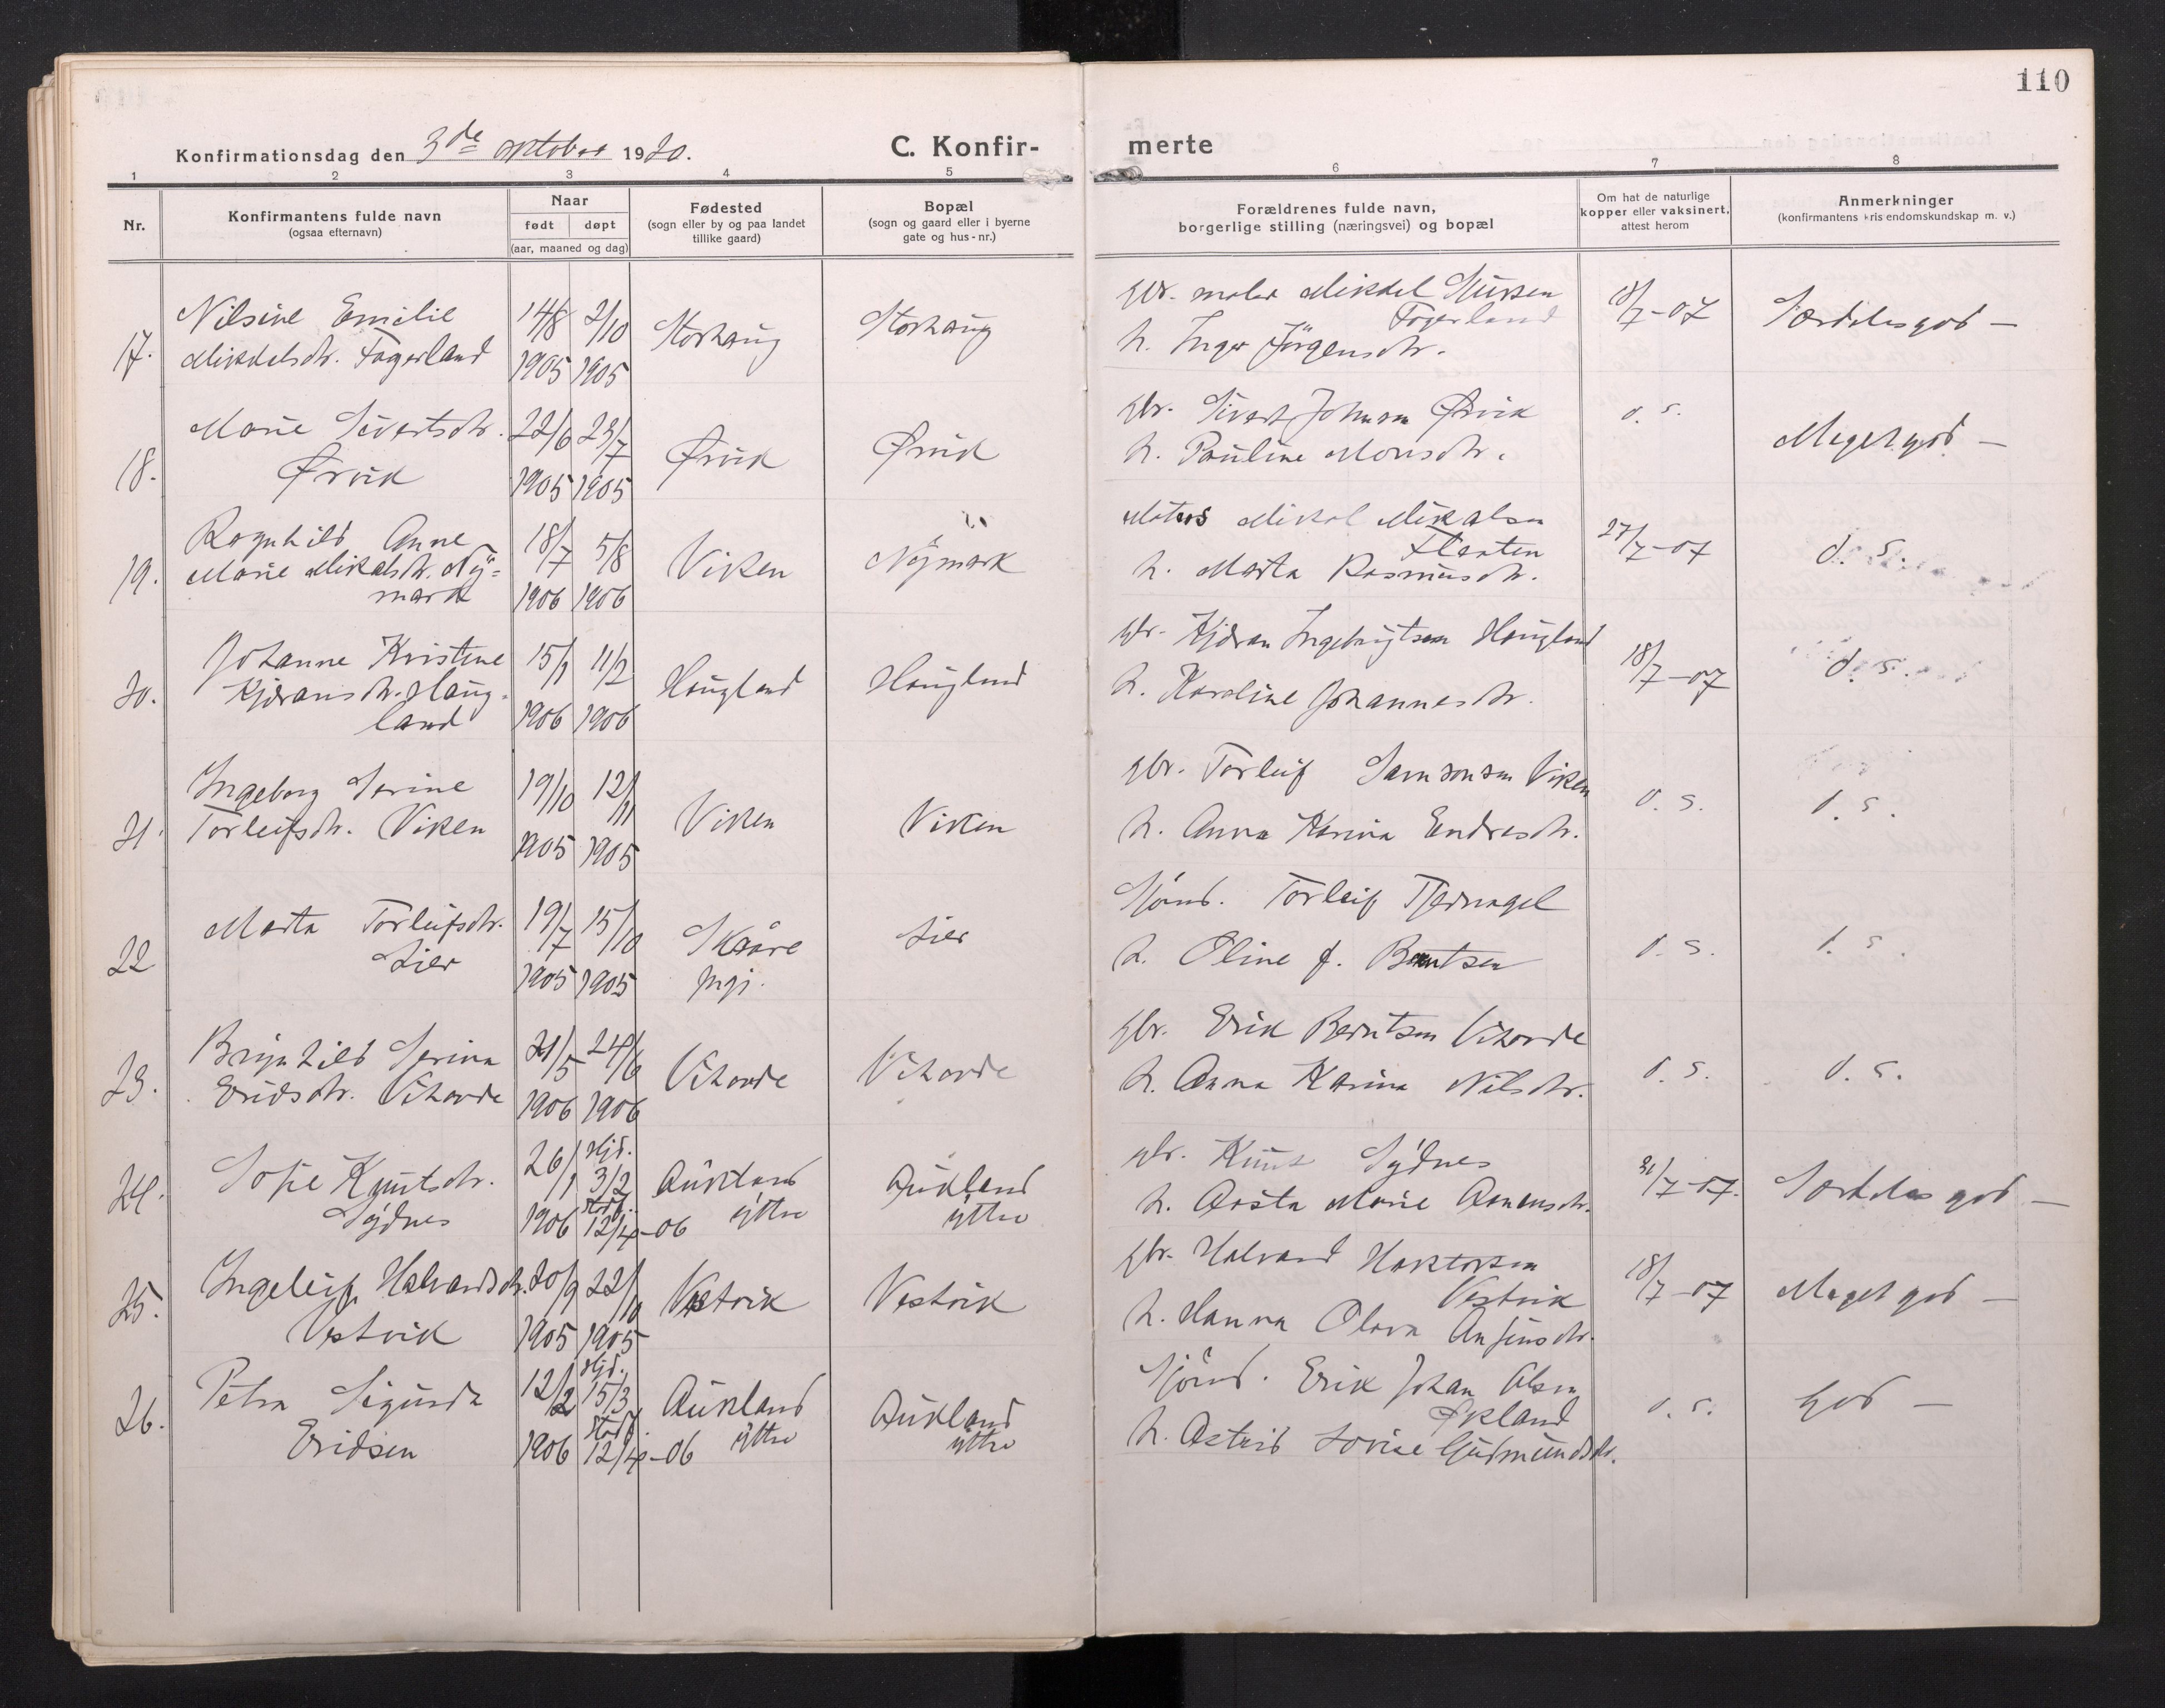 110
Konfirmationsdag den 3de oktober 1920.
C. Konfir-
merte
1 2 3 4 5 6 7 8
Nr.
Konfirmantens fulde navn
(ogsaa efternavn)
Naar
født døpt
(aar, maaned og dag)
Fødested
(sogn eller by og paa landet
tillike gaard)
Bopæl
(sogn og gaard eller i byerne
gate og hus-nr.)
Forældrenes fulde navn,
borgerlige stilling (næringsvei) og bopæl
Om hat de naturlige
kopper eller vaksinert,
attest herom
Anmerkninger
(konfirmantens kristendomskundskap m. v.)
17.
Nilsine Emilie
Mikkelsdtr. Fagerland
14/8 2/10
1905 1905
Storhaug
Storhaug
Gbr. maler Mikkel Sjursen
Fagerland
h. Inger Jørgensdtr.
18/7-07
Særdeles god —
18.
Marie Sivertsdtr.
Ørvik
22/6 23/7
1905 1905
Ørvik
Ørvik
Gbr. Sivert Johnsen Ørvik
h. Pauline Monsdtr.
d. s.
Meget god —
19.
Ragnhild Anne
Marie Mikalsdtr. Ny=
mark
18/7 5/8
1906 1906
Viken
Nymark
Mikal Mikalsen
h. Marta Rasmusdtr.
27/7-07
d. s.
20.
Johanne Kristine
Kjeransdtr. Haug-
land
15/1 11/2
1906 1906
Haugland
Haugland
Gbr. Kjeran Ingebrigtsen Haugland
h. Karoline Johannesdtr.
18/7-07
d. s.
21.
Ingeborg Serine
Torleifsdtr. Viken
19/10 12/11
1905 1905
Viken
Viken
Gbr. Torleif Samsonsen Viken
h. Anna Karina Endresdtr.
d. s.
d. s.
22
Marta Torleifsdtr.
Lier
19/7 15/10
1905 1905
Skaare
Lier
Sjömd. Torleif Tjernagel
h. Oline f. Berntsen
d. s.
d. s.
23.
Brynhild Serina
Eriksdtr. Vihovde
21/5 24/6
1906 1906
Vihovde
Vihovde
Gbr. Erik Berntsen Vihovde
h. Anna Karina Nilsdtr.
d. s.
d. s.
24.
Sofie Knutsdtr.
Sydnes
26/1 Hjd. 3/2
1906 stadf. 12/4-06
Aukland
yttre
Aukland
ytre
Gbr. Knut Sydnes
h. Aasta Marie Aamensdtr.
31/7-07.
Særdeles god —
25.
Ingeleif Halvardsdtr.
Vestvik
20/9 22/10
1905 1905
Vestvik
Vestvik
Gbr. Halvard Haktorsen
Vestvik
h. Hanna Olava Anfinsdtr.
18/7-07
Meget god —
26.
Petra Sigurda
Eriksen
12/2 Hjd. 15/3
1906 stadf. 12/4-06
Aukland
ytre
Aukland
ytre
Sjömd. Erik Johan Olsen
Økland
h. Astrid Lovise Gudmundsdtr.
d. s.
God —